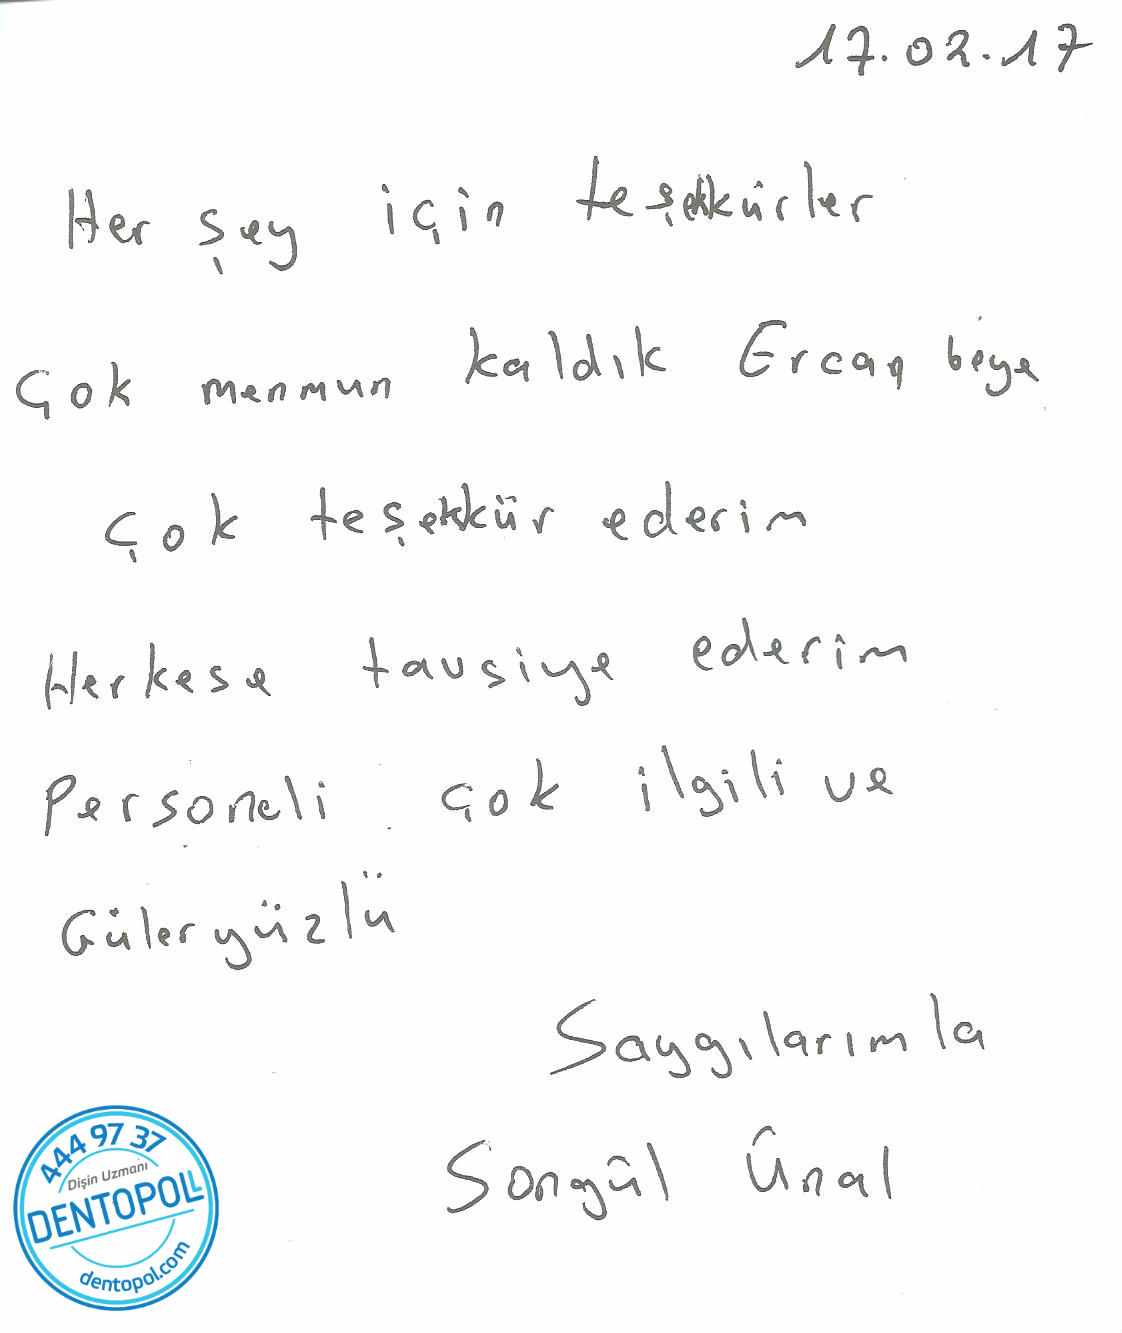 17.02.17
Her şey için teşekkürler
Çok menmun kaldık Ercan beye
Çok teşekkür ederim
Herkese tavsiye ederim
Personeli çok ilgili ve
Güler yüzlü
Saygılarımla
Songül Ünal
444 97 37
Dişin Uzmanı
DENTOPOL
dentopol.com